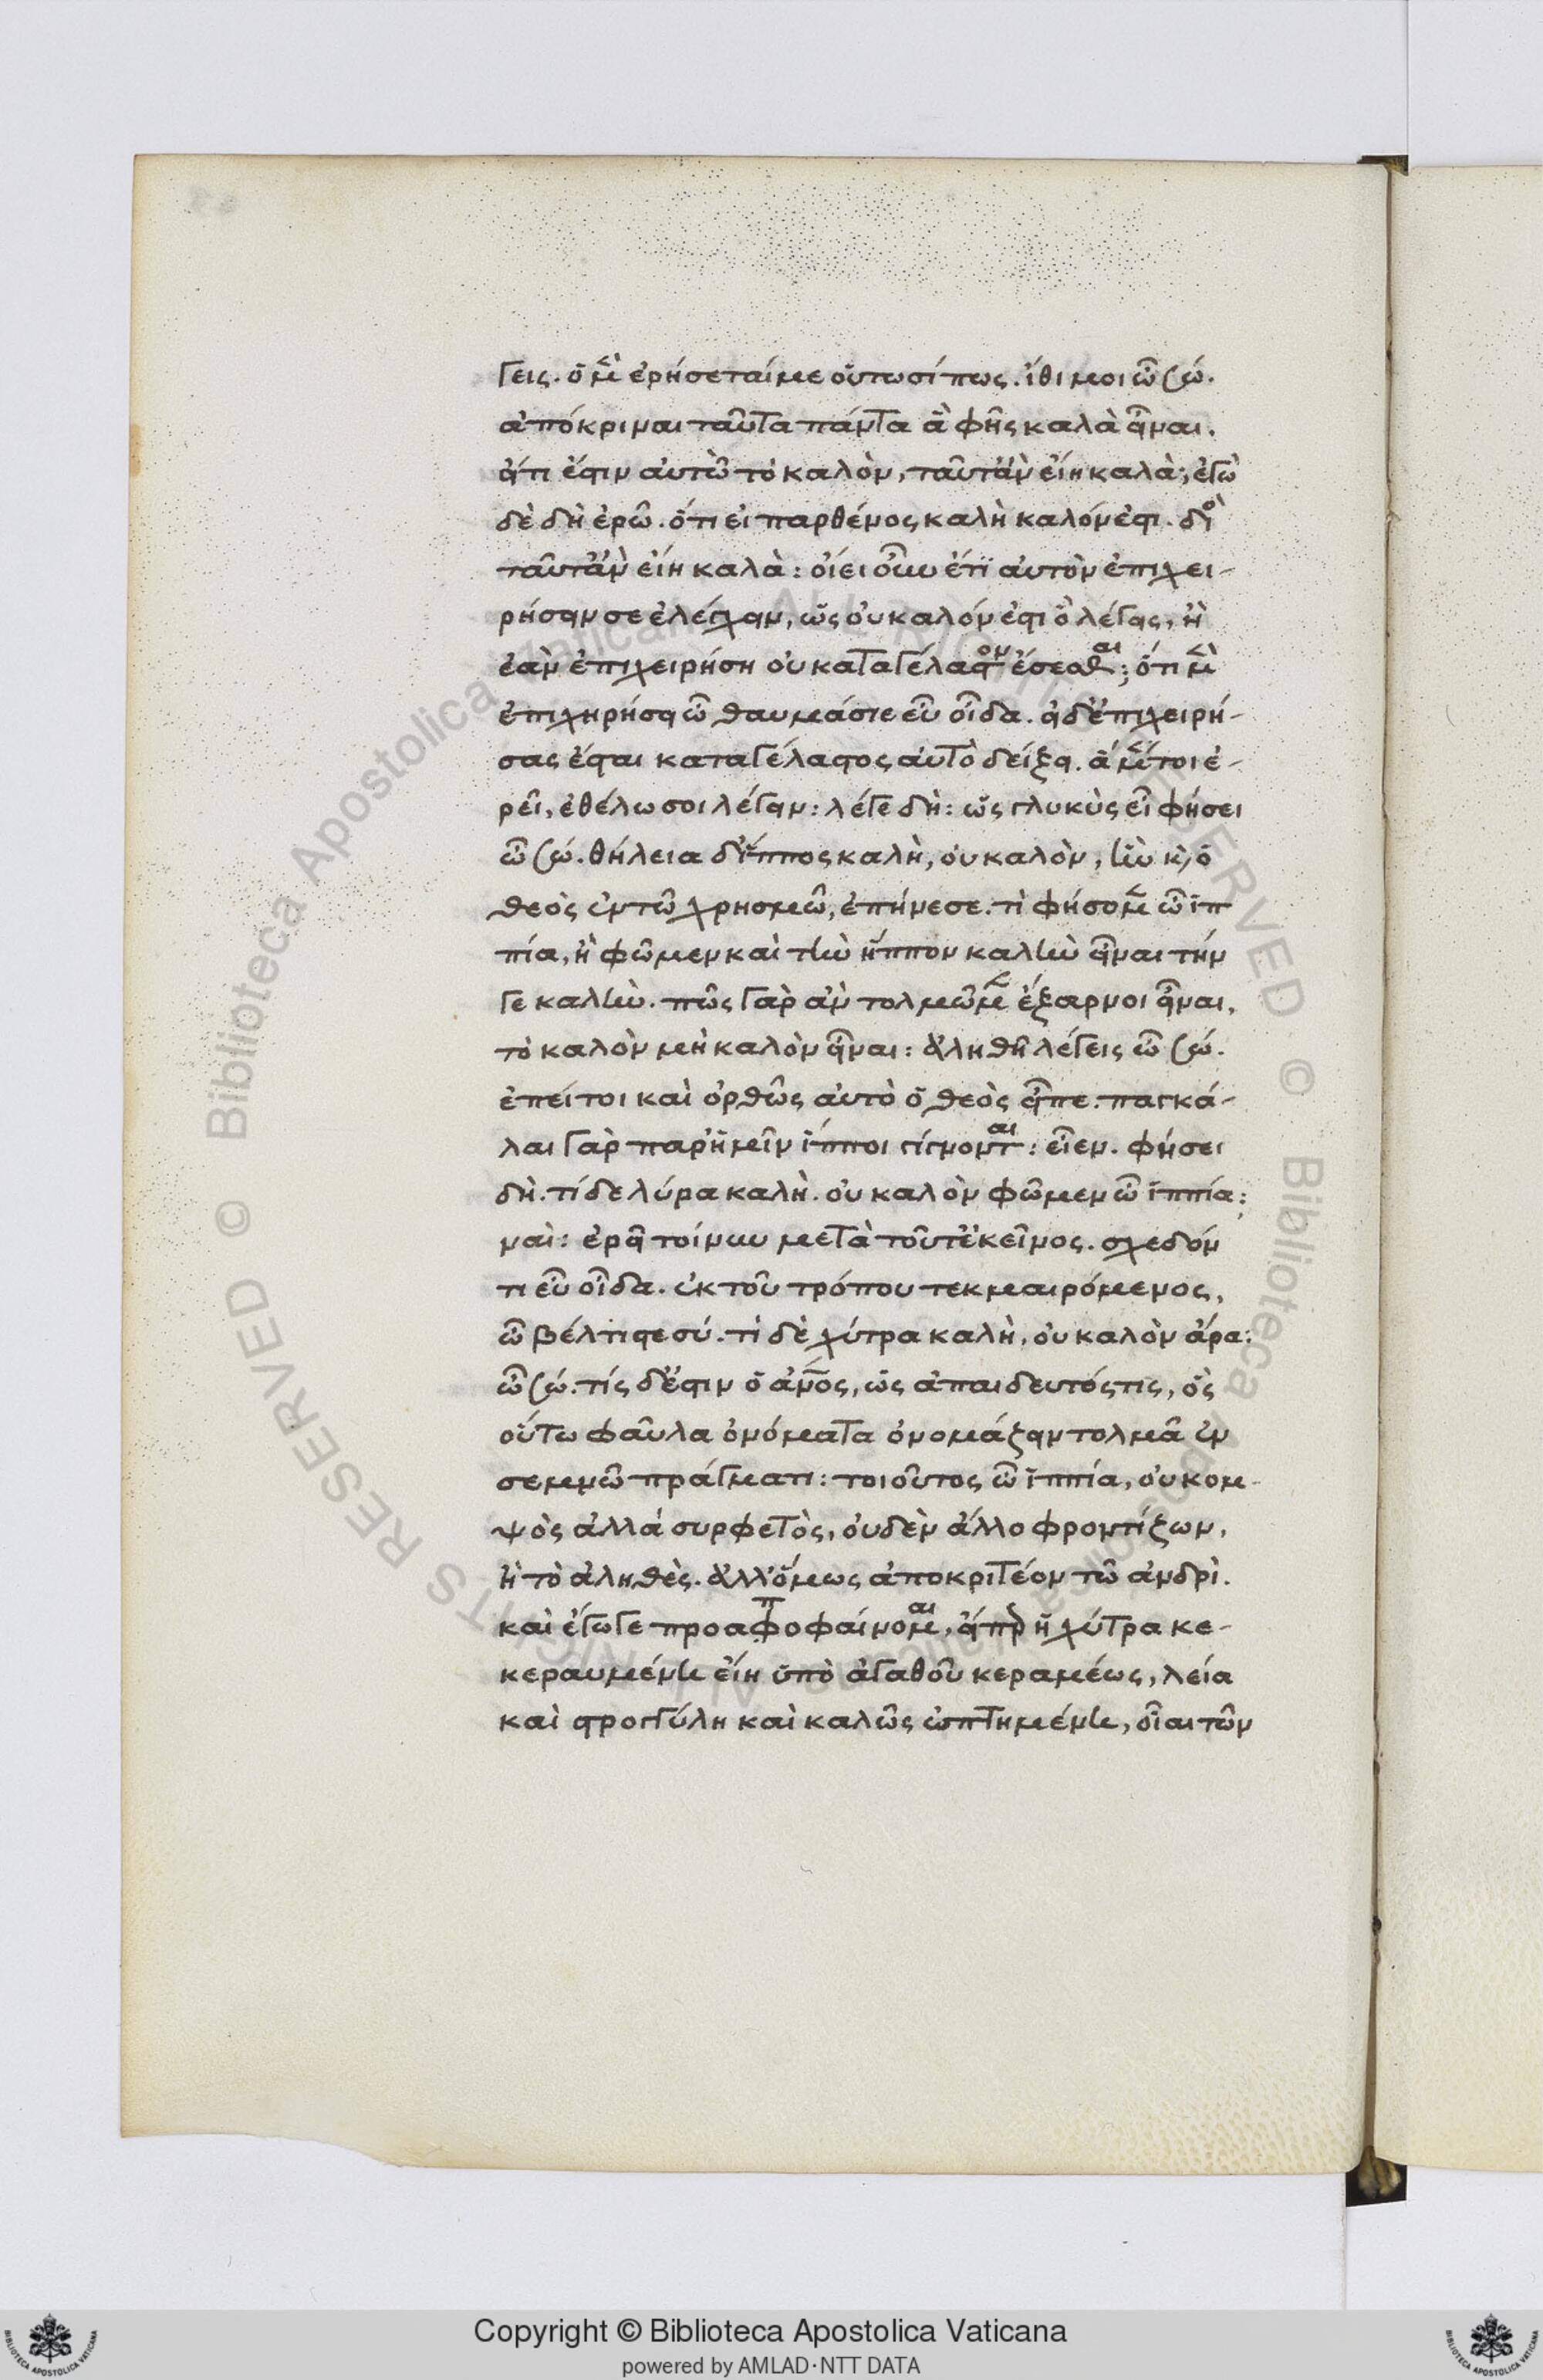 γεις. ὁ μὲν ἐρήσεταί με οὑτωσί πως. ἴθι μοι ὦ σώ.
ἀπόκριναι ταῦτα πάντα ἃ φῂς καλὰ εἶναι.
εἴ τί ἐστιν αὐτὸ τὸ καλὸν, ταῦτ' ἂν εἴη καλὰ; ἐγὼ
δὲ δὴ ἐρῶ. ὅτι εἰ παρθένος καλὴ καλόν ἐστι. δι' ὃ
ταῦτ' ἂν εἴη καλὰ: οἴει οὖν ἔτι αὐτὸν ἐπιχει-
ρήσειν σε ἐλέγχειν, ὡς οὐ καλόν ἐστι ὃ λέγεις, ἢ
ἐὰν ἐπιχειρήση οὐ καταγέλαστον ἔσεσθαι; ὅτι μὲν
ἐπιχηρήσει ὦ θαυμάσιε εὖ οἶδα. εἰ δ' ἐπιχειρή-
σας ἔσται καταγέλαστος αὐτὸ δείξει. ἃ μέντοι ἐ-
ρεῖ, ἐθέλω σοι λέγειν: λέγε δὴ: ὡς γλυκὺς εἶ φήσει
ὦ σώ. θήλεια δ' ἵππος καλὴ, οὐ καλὸν, ἣν καὶ ὁ
θεὸς ἐν τῶ χρησμῶ, ἐπήνεσε. τί φήσομεν ὦ ἱπ
πία, ἢ φῶμεν καὶ τὴν ἵππον καλὴν εἶναι τήν
γε καλὴν. πῶς γὰρ ἂν τολμῶμεν ἔξαρνοι εἶναι,
τὸ καλὸν μὴ καλὸν εἶναι: ἀληθῆ λέγεις ὦ σώ.
ἐπεί τοι καὶ ὀρθῶς αὐτὸ ὁ θεὸς εἶπε. παγκά-
λαι γὰρ παρ' ἡμῖν ἵπποι γίγνονται: εἶεν. φήσει
δὴ. τί δε λύρα καλὴ. οὐ καλὸν φῶμεν ὦ ἱππία;
ναὶ: ἐρεῖ τοίνυν μετὰ τοῦτ' ἐκεῖνος. σχεδόν
τι εὖ οἶδα. ἐκ τοῦ τρόπου τεκμαιρόμενος,
ὦ βέλτιστε σύ. τί δὲ χύτρα καλὴ, οὐ καλὸν ἄρα;
ὦ σώ. τίς δ' ἔστιν ὁ ἄνος, ὡς ἀπαιδευτός τις, ὃς
οὕτω φαῦλα ὀνόματα ὀνομάζειν τολμᾶ ἐν
σεμνῶ πράγματι: τοιοῦτος ὦ ἱππία, οὐ κομ-
ψὸς ἀλλά συρφετὸς, οὐδὲν ἄλλο φροντίζων,
ἢ τὸ ἀληθὲς. ἀλλ' ὅμως ἀποκριτέον τῶ ἀνδρὶ.
καὶ ἔγωγε προαποφαίνομαι, εἴπερ ἡ χύτρα κε-
κεραυμένη εἴη ὑπὸ ἀγαθοῦ κεραμέως, λεία
καὶ στρογγύλη καὶ καλῶς ὠπτημένη, οἷαι τῶν
Copyright © Biblioteca Apostolica Vaticana
powered by AMLAD·NTT DATA